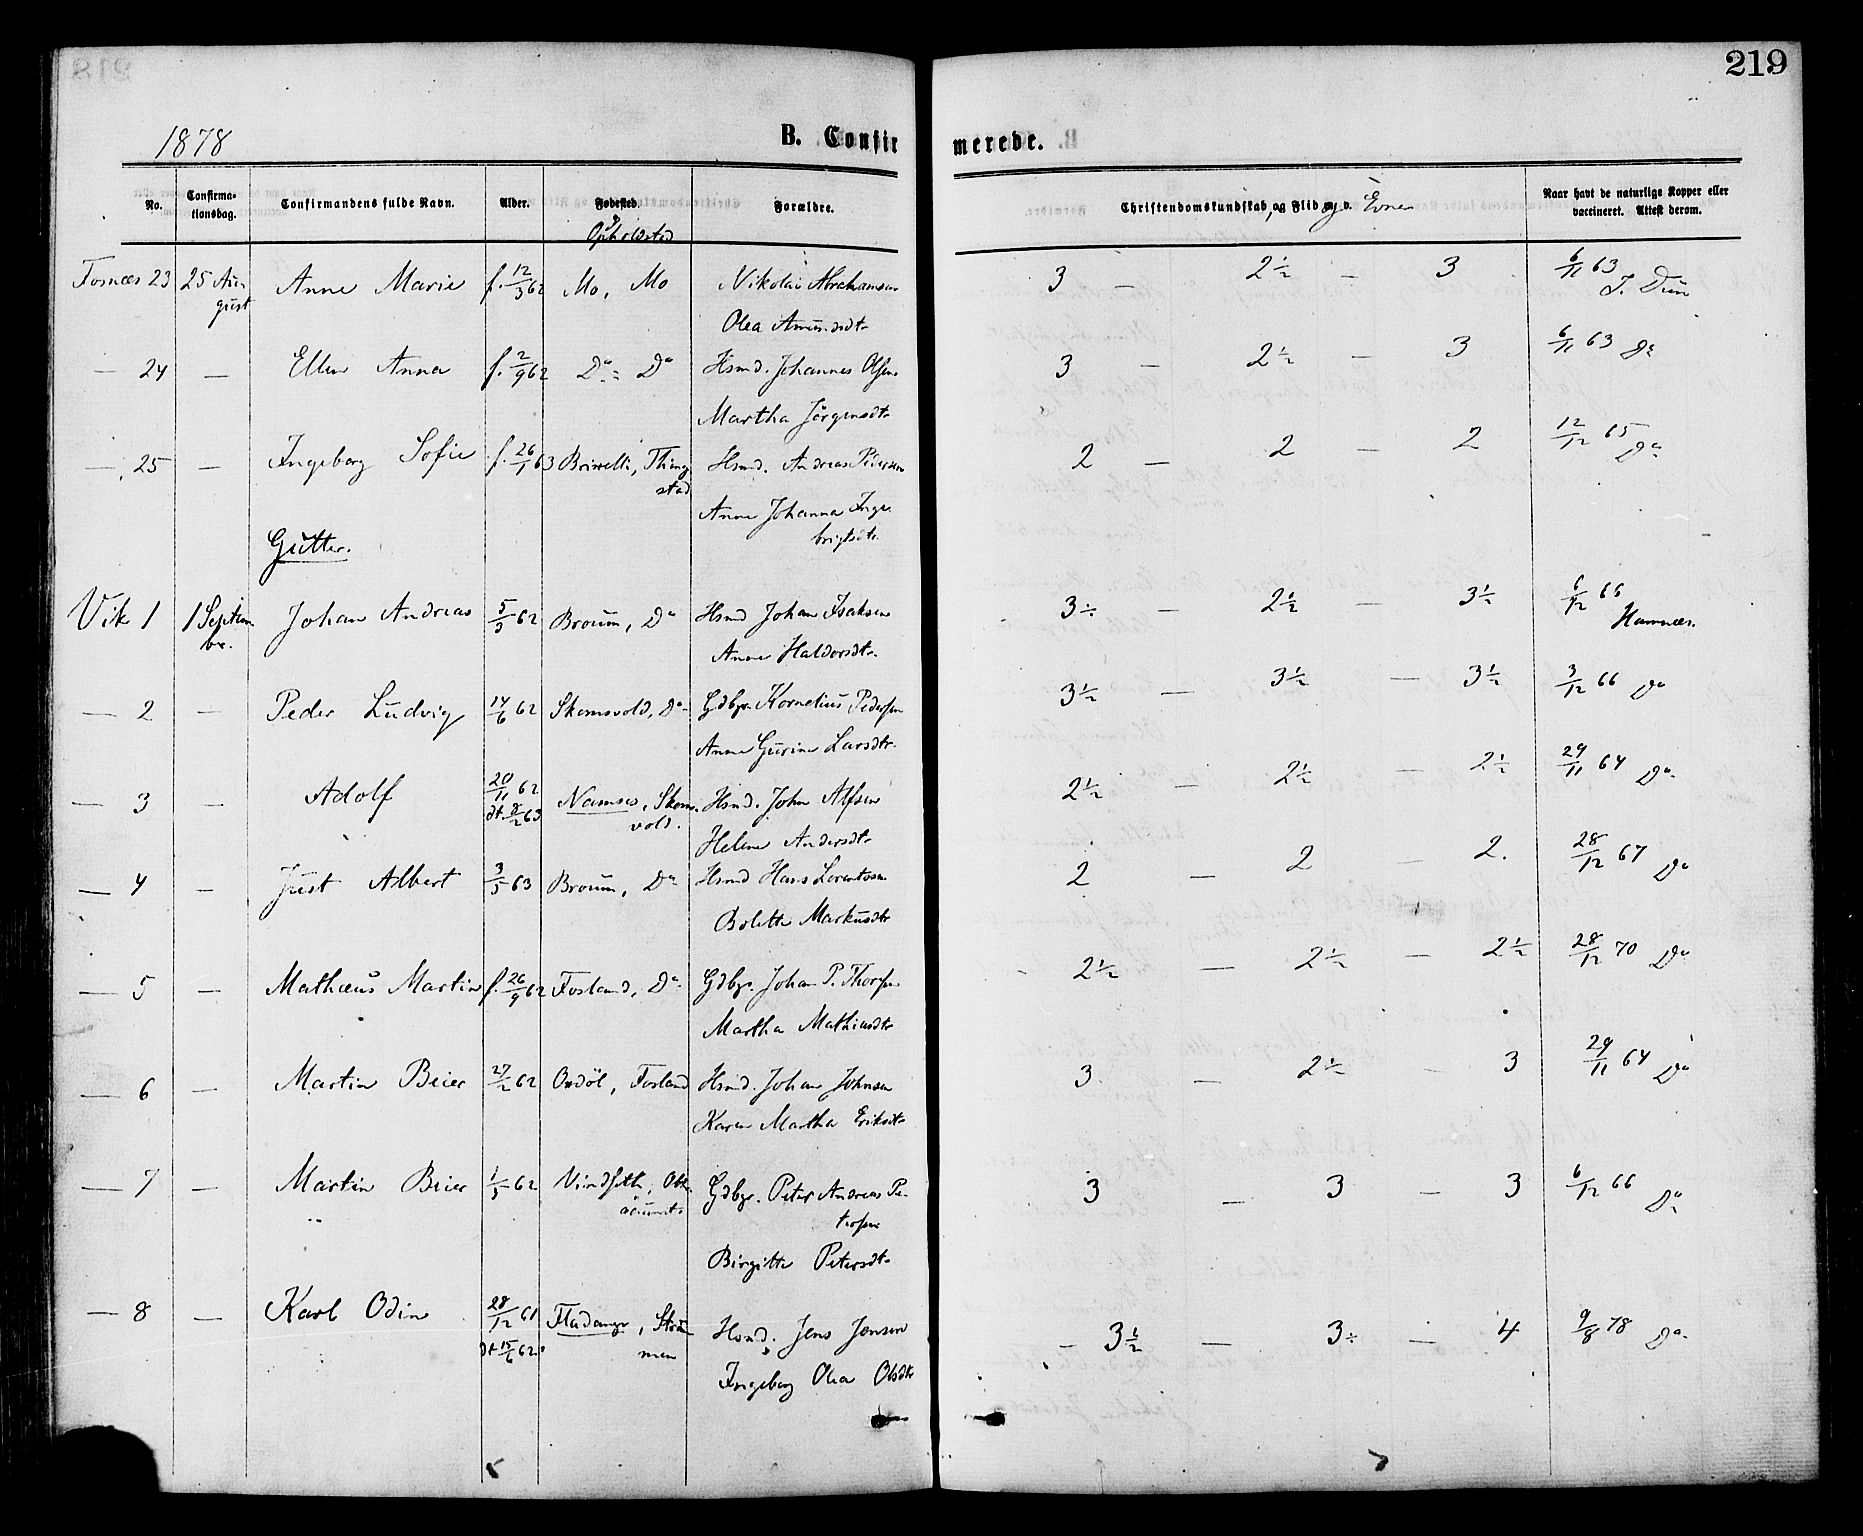 219
1878
B. Confirmerede.
No.
Confirmationsdag.
Confirmandens fulde Navn.
Alder.
Fødested.
Opholdsted
Forældre.
Christendomskundskab, og Flid m. v. og Evner
Naar havt de naturlige Kopper eller vaccineret. Attest derom.
Fosnæs 23 25 August Anne Marie f. 12/3 62 Mo, Mo Nikolai Abrahamsen 3 — 2½ — 3 6/11 63 J. Dun
Olea Amundsdtr
— 24 — Ellen Anna f. 2/9 62 Do Do Hsmd. Johannes Olsen 3 — 2½ — 3 6/11 63 Do
Martha Jørgensdtr
— 25 — Ingeborg Sofie f. 26/1 63 Thingstad Hsmd. Andreas Pedersen 2 — 2 — 2 12/12 65 Do
Anne Johanna Ingebrigtsdtr.
Gutter.
Vik 1 1 September. Johan Andreas 5/3 62 Broum, Do Hsmd Johan Isaksen 3÷ — 2½ — 3½ 6/12 66 Hamnæs.
Anne Haldorsdtr.
— 2 — Peder Ludvig 14/6 62 Skomsvold, Do Gdbgr. Kornelius Pedersen 3½ — 3½ — 3½ 3/12 66 Do
Anne Gurine Larsdtr.
— 3 — Adolf 20/11 62 dt. 8/2 63 Namsos, Skomsvold. Hsmd. John Alfsen 2½ — 2½ — 2½ 29/11 64 Do
Helene Andersdtr
— 4 — Just Albert 3/5 63 Broum, Do Hsmd Hans Lorentsen 2 — 2 — 2. 28/12 67 Do
Bolette Markusdtr
— 5 — Mathæus Martin f. 26/9 62 Fosland, Do Gdbgr. Johan P. Thorsen 2½ — 2½ — 2½ 28/12 70 Do
Martha Mathiasdtr
— 6 — Martin Beier 27/2 62 Fosland Hsmd. Johan Johnsen 3 — 2½ — 3 29/11 64 Do
Karen Martha Eriksdtr
— 7 — Martin Beier 1/3 62 Gdbgr. Peter Andreas Petersen 3 — 3 — 3 6/12 66 Do
Birgitte Petersdtr
— 8 — Karl Odin 28/12 61 dt. 15/6 62 Fladanger, Strømmen Hsmd. Jens Jensen 3½ — 3÷ — 4 9/8 78 Do
Ingeborg Olea Olsdtr